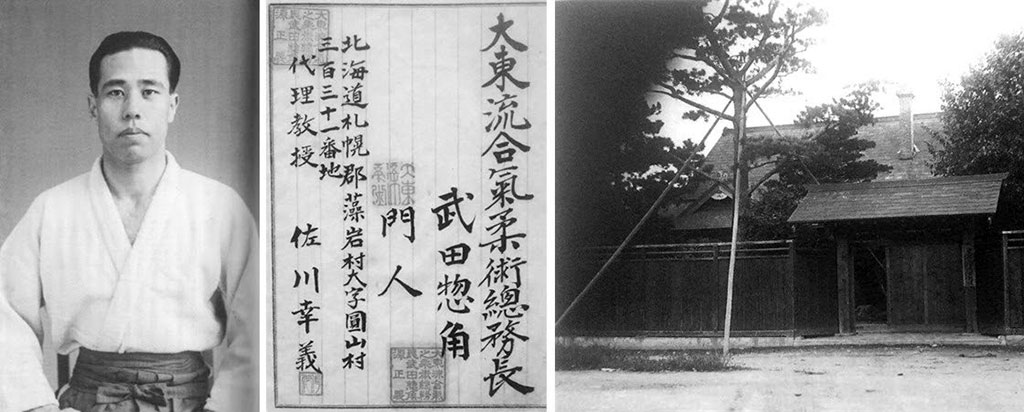 大東流合氣柔術總務長
武田惣角
門人
北海道札幌郡藻岩村大字圓山村
三百三十一番地
代理教授 佐川幸義